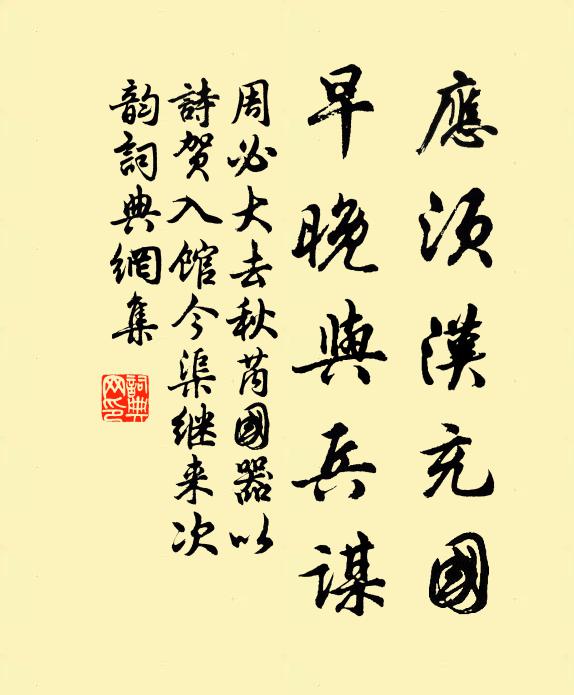 應須漢充國
早晚與兵謀
周必大去秋芮國器以
詩賀入館今渠继来次
韵詞典網集
詞典网印